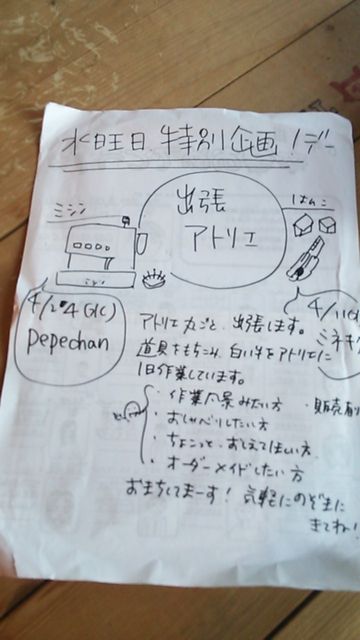 水曜日 特別企画 1デー
ミシン
出張
アトリエ
はんこ
4/24(水)
pepechan
4/11
ミネキ
アトリエ丸ごと、出張します。
道具をもちこみ 白い牛をアトリエに
1日作業しています。
・作業風景みたい方 ・販売有り
・おしゃべりしたい方
・ちょこっと、おしえてほしい方
・オーダーメイドしたい方
おまちしてまーす! 気軽にのぞきに
きてね!